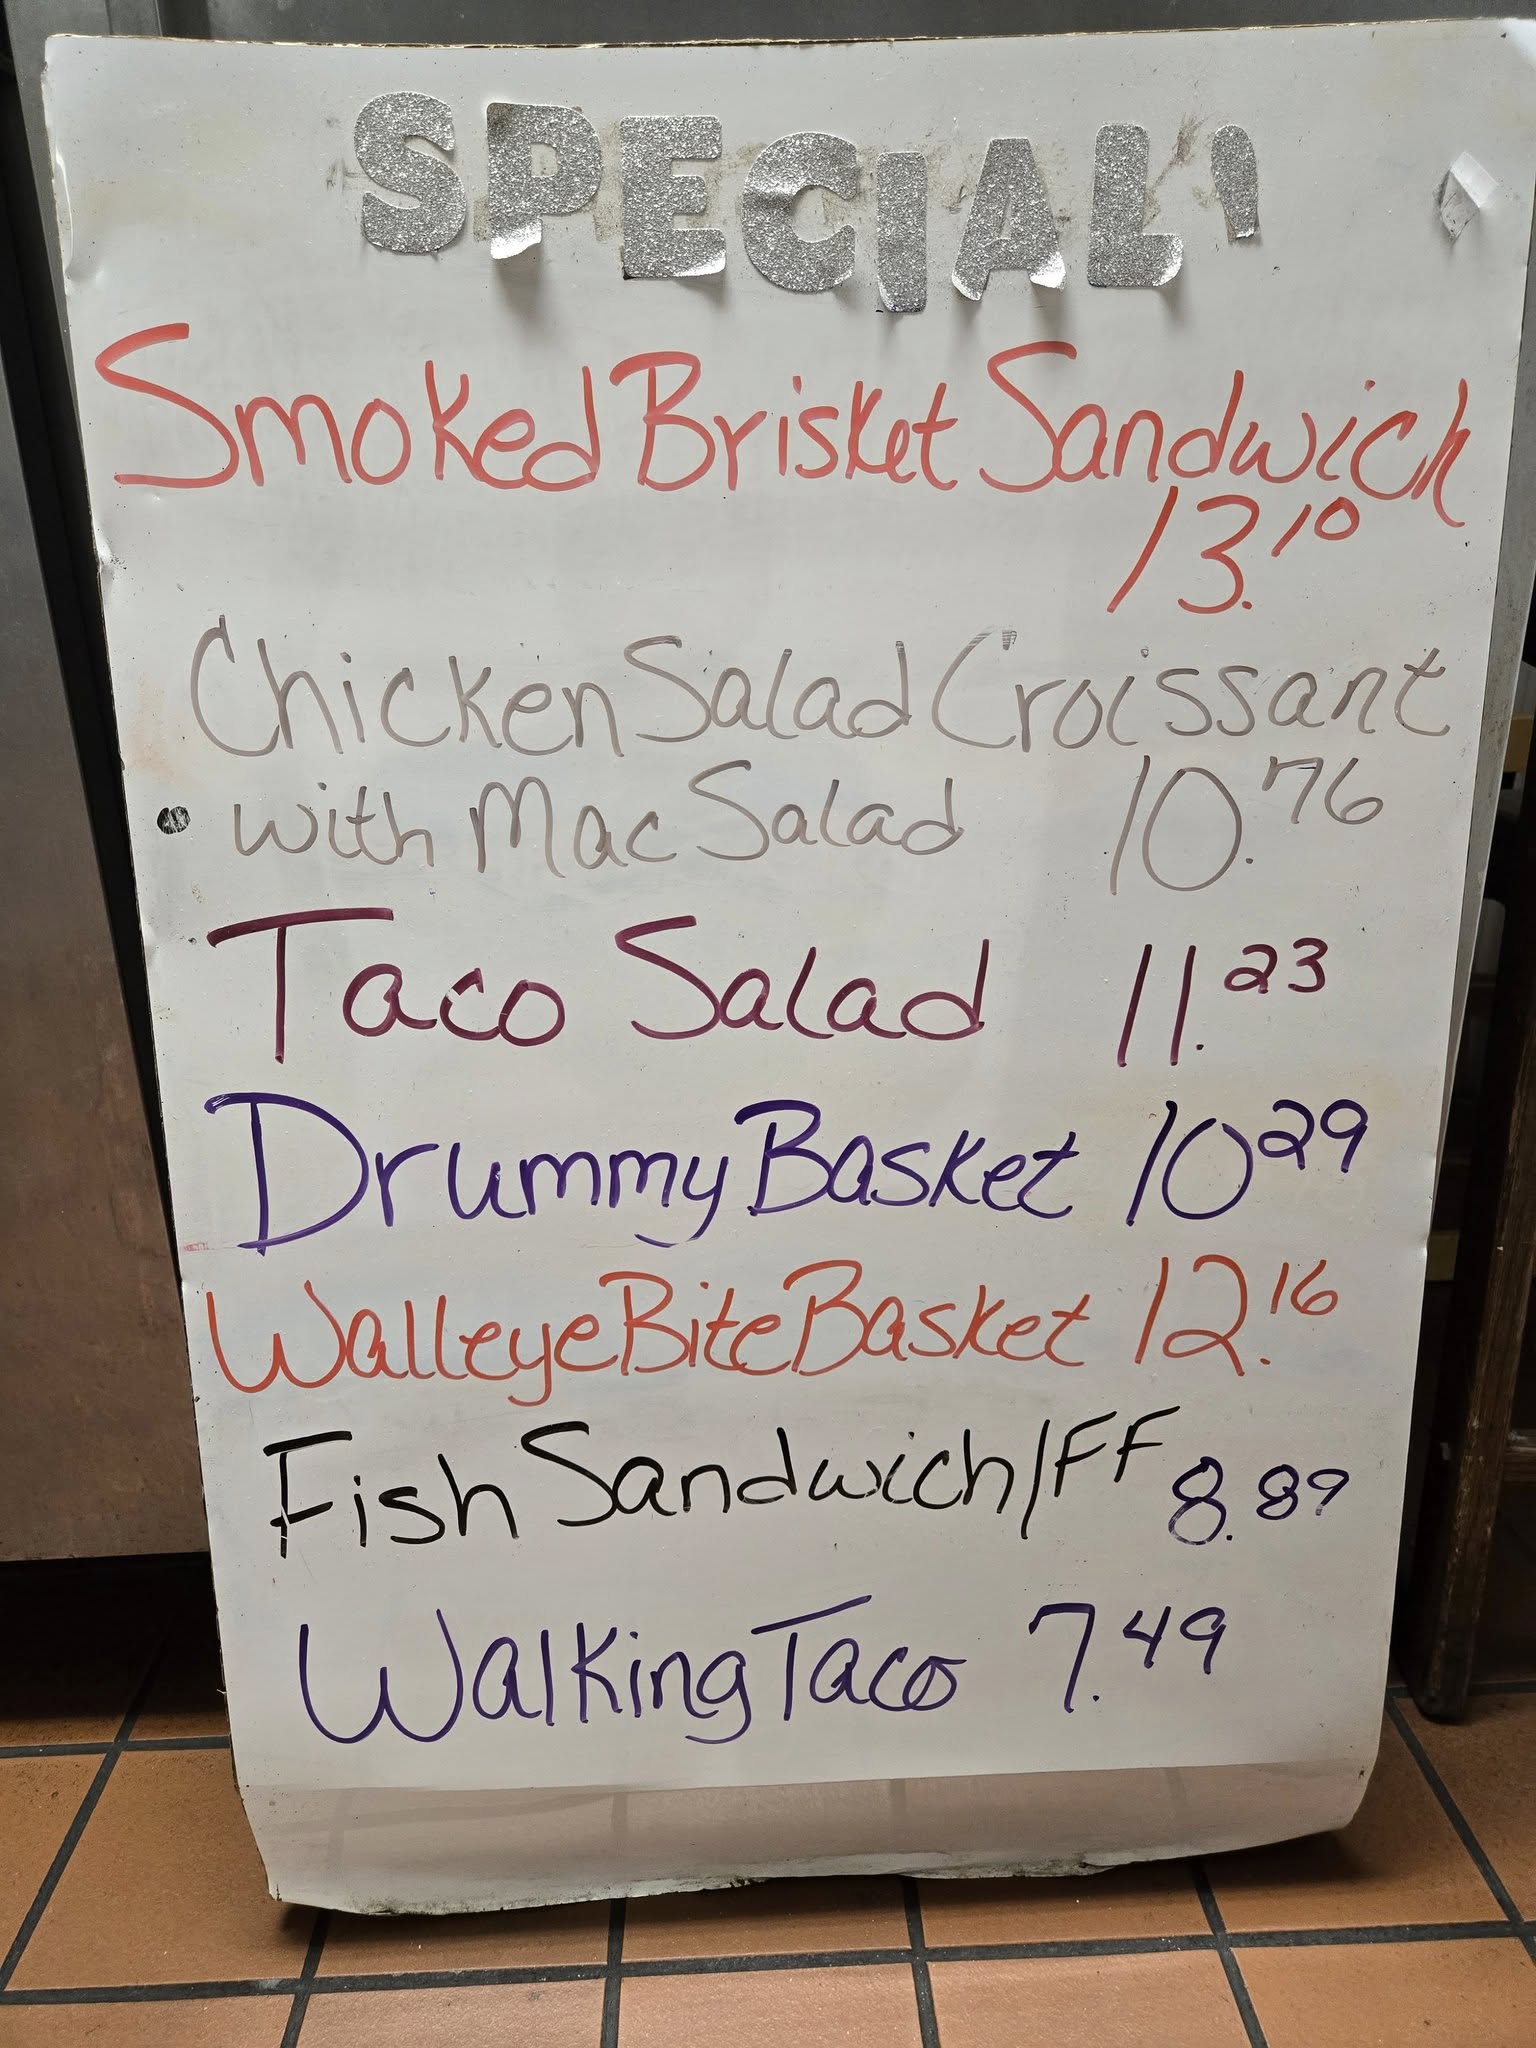 SPECIAL'
Smoked Brisket Sandwich
13.10
Chicken Salad Croissant
• with Mac Salad 10.76
Taco Salad 11.23
Drummy Basket 10 29
Walleye Bite Basket 12.16
Fish Sandwich/FF 8.89
Walking Taco 7.49